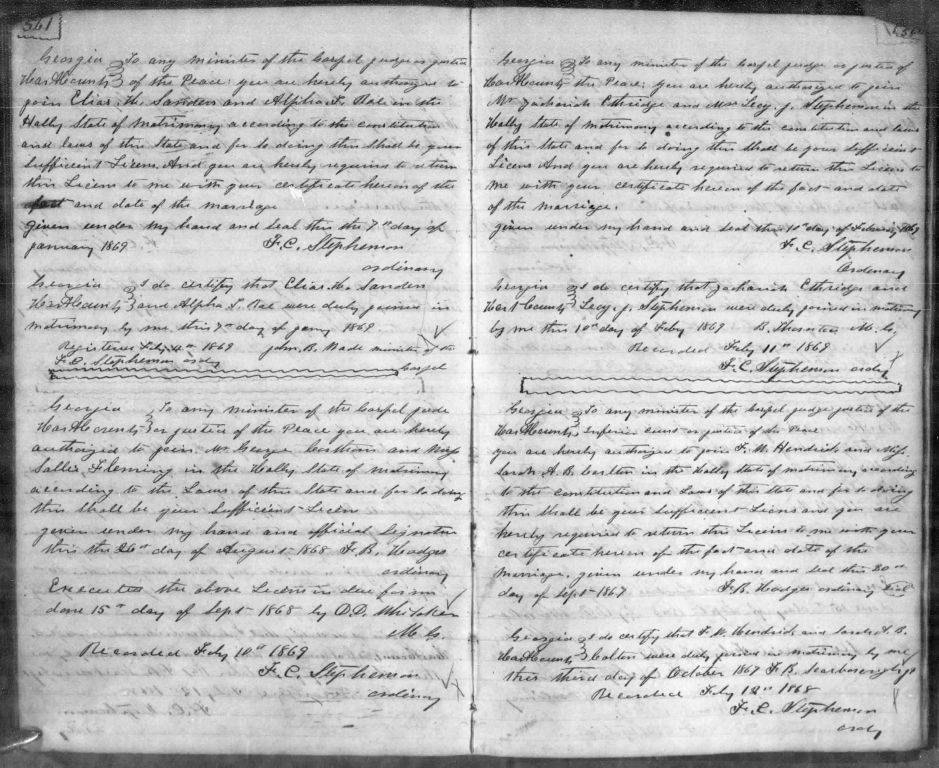 561
Georgia } To any minister of the Gospel judge or justice
Hart County } of the Peace: you are hereby authorized to
join Elias. H. Sanders and Alpha. T. in the
Holly State of matrimony according to the constitution
and laws of this State and for so doing this shall be your
Sufficient Licens. And you are hereby required to return
this Licens to me with your certificate herein of the
fact and date of the marriage
given under my hand and seal this the 7th day of
january 1869 F. C. Stephenson
ordinary
Georgia } I do certify that Elias. H. Sanders
Hart County } and Alpha T. were duly joined in
matrimony by me this 7th day of jany 1869
Registered Feby 1869 john. B. Wade minister of the
F. C. Stephenson ordy Gospel
Georgia } To any minister of the Gospel jude
Hart County } or justice of the Peace you are hereby
authorized to join Mr George and Miss
Sallie Fleming in the Holly State of matrimony
according to the Laws of this State and for so doing
this shall be your Sufficient Licen
given under my hand and official Signature
this the 26th day of August 1868 F. B. Hodges
ordinary
Executed the above Licens in due form
done 15th day of Sept 1868 by D.D. Whitaker
M. G.
Recorded Feby 10th 1869
F. C. Stephenson
ordinary
Georgia } To any minister of the Gospel judge or justice of
Hart County } the Peace: you are hereby authorized to join
Mr Zachariah Ethridge and Miss Lecy. J. Stephenson in the
Holly State of matrimony according to the constitution and laws
of this State and for so doing this shall be your Sufficient
Licens And you are hereby required to return this Licens to
me with your certificate herein of the fact and date
of the marriage.
given under my hand and seal this 10th day of February 1869
F. C. Stephenson
Ordinary
Georgia } I do certify that Zachariah Ethridge and
Hart County } Lecy. J. Stephenson were duly joined in matrimony
by me this 10th day of Feby 1869 B. Thornton M. G.
Recorded Feby 11th 1869
F. C. Stephenson ordy
Georgia } To any minister of the Gospel judge justice of the
Hart County } Superior Court or justice of the Peace
you are hereby authorized to join F. W. Hendrick and Miss.
Sarah A. B. Carlton in the Holly State of matrimony according
to the constitution and Laws of this State and for so doing
this shall be your Sufficient Licens and you are
hereby required to return this Licens to me with your
certificate herein of the fact and date of the
marriage. given under my hand and seal this 30th
day of Sept 1867 F. B. Hodges ordinary Seal
Georgia } I do certify that F. W. Hendrick and Sarah A. B.
Hart County } Colton were duly joined in matrimony by me
this third day of October 1867 F. B. Scarborough jp
Recorded Feby 12th 1868
F. C. Stephenson
ordy